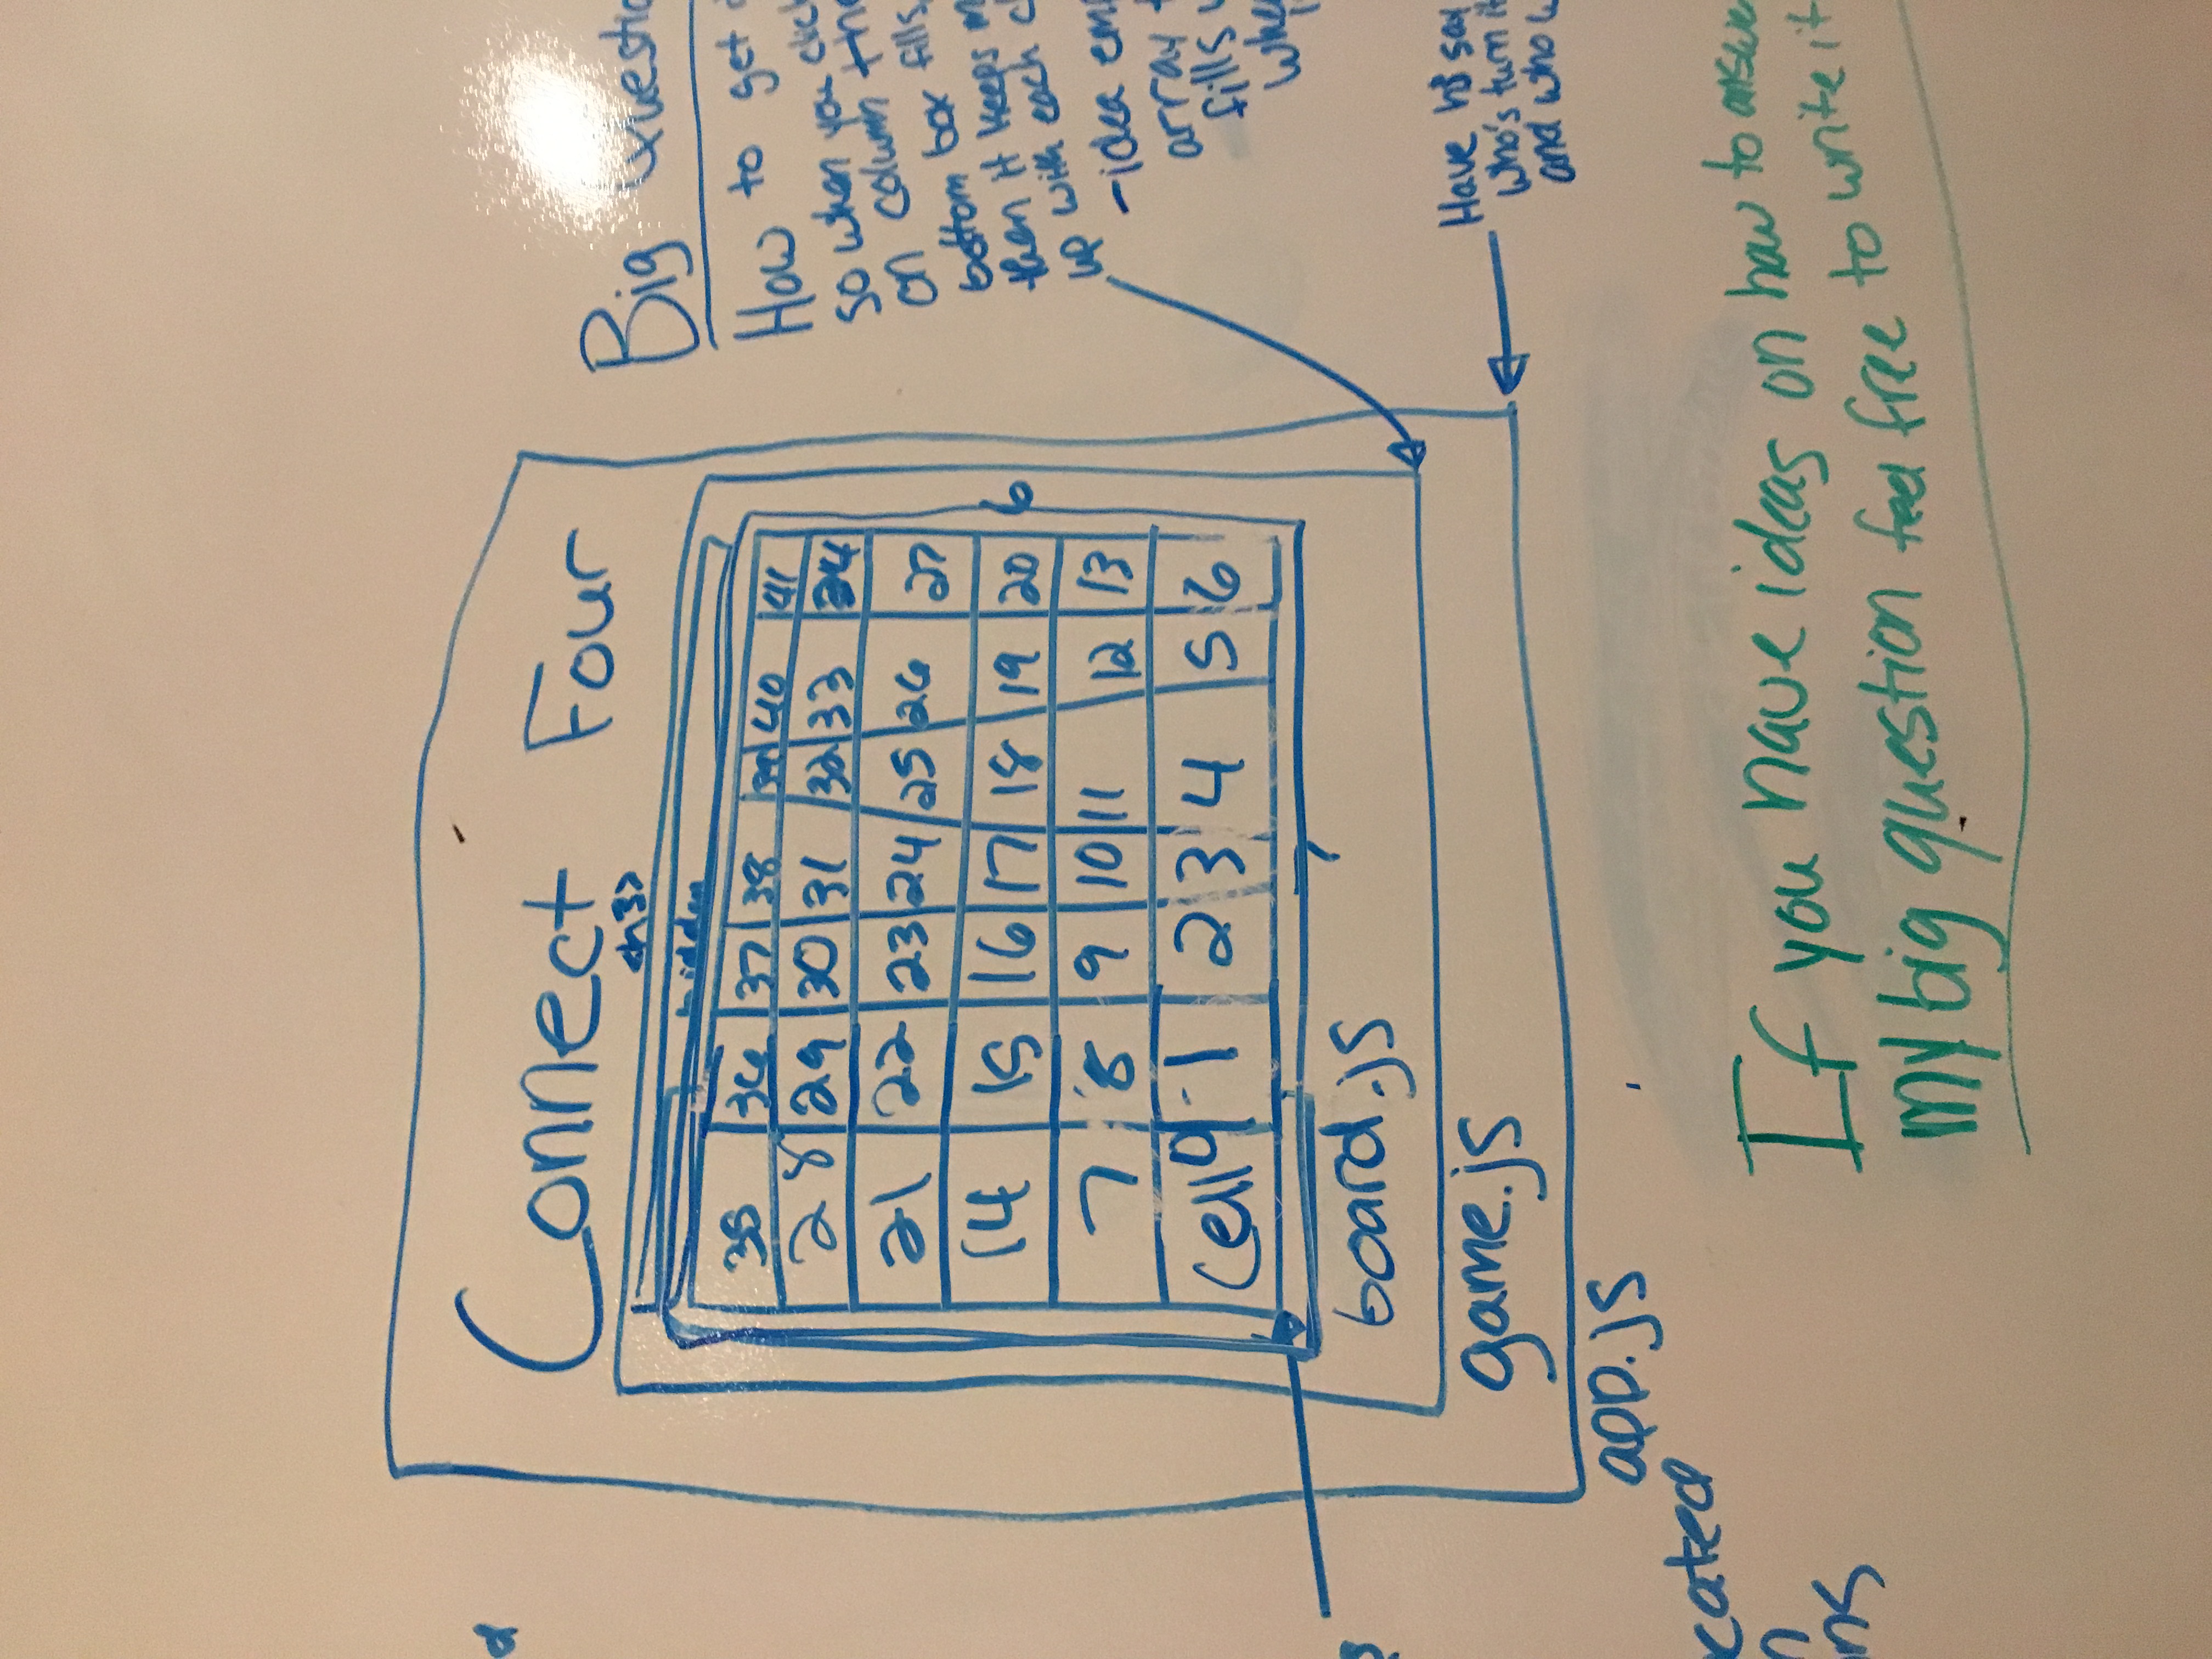 Connect Four
<h3>
hidden
35 36 37 38 39 40 41
28 29 30 31 32 33 34
21 22 23 24 25 26 27
14 15 16 17 18 19 20
7 8 9 10 11 12 13
Cell 0 1 2 3 4 5 6
6
7
board.js
game.js
app.js
cated
Big Questio
How to get
so when you click
on column the
bottom box fills,
then it keeps m
up with each c
-idea em
array
fills
whe
Have h3 say
who's turn it
and who w
If you have ideas on how to answe
my big question feel free to write it